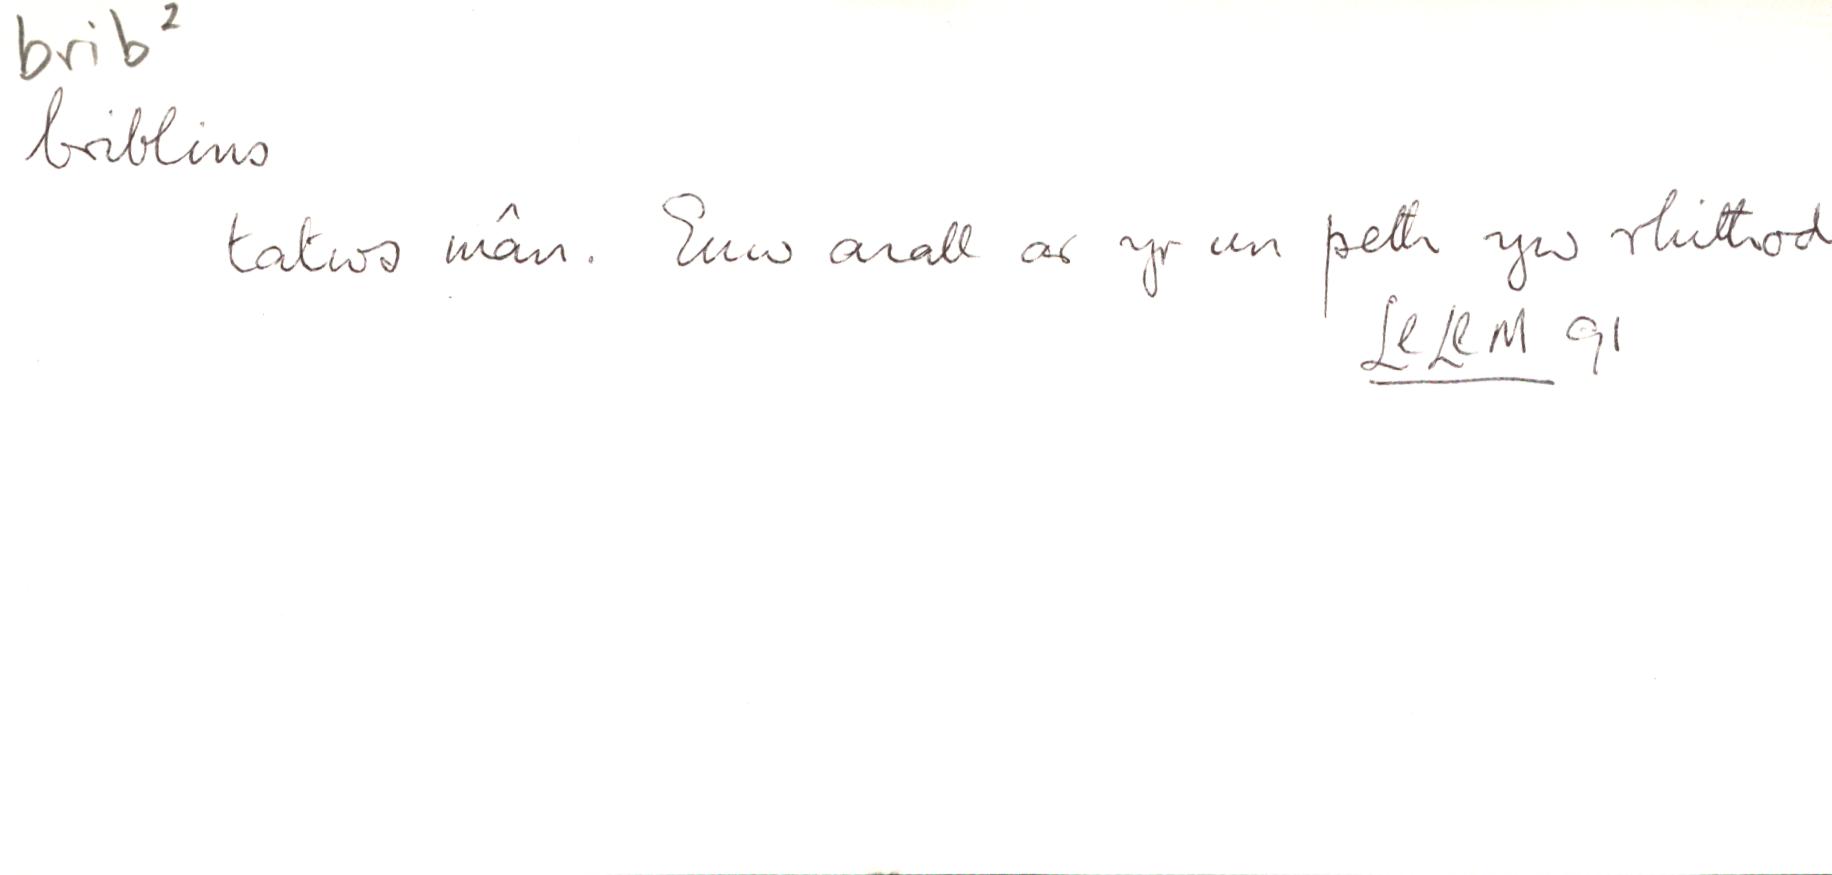 brib²
briblins
tatws mân. Enw arall ar yr un peth yw rhithrod
LlLlM 91